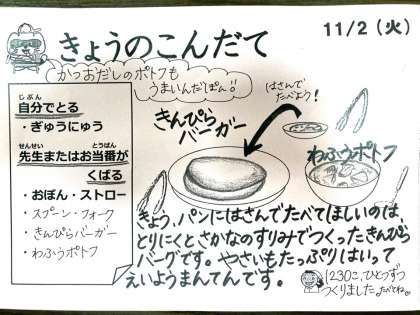 きょうのこんだて
11/2（火）
かつおだしのポトフも
うまいんだぽん!!
じぶん
自分でとる
・ぎゅうにゅう
せんせい とうばん
先生またはお当番が
くばる
・おぼん・ストロー
・スプーン・フォーク
・きんぴらバーガー
・わふうポトフ
はさんで
たべよう!
きんぴら
バーガー
わふうポトフ
きょう、パンにはさんでたべてほしいのは、
とりにくとさかなのすりみでつくったきんぴら
バーグです。やさいもたっぷりはいって
えいようまんてんです。
1230こ、ひとつずつ
つくりました。たべてね。